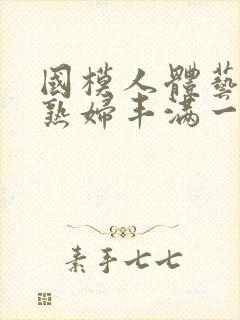 國模人體藝
熟婦丰满一
素手七七